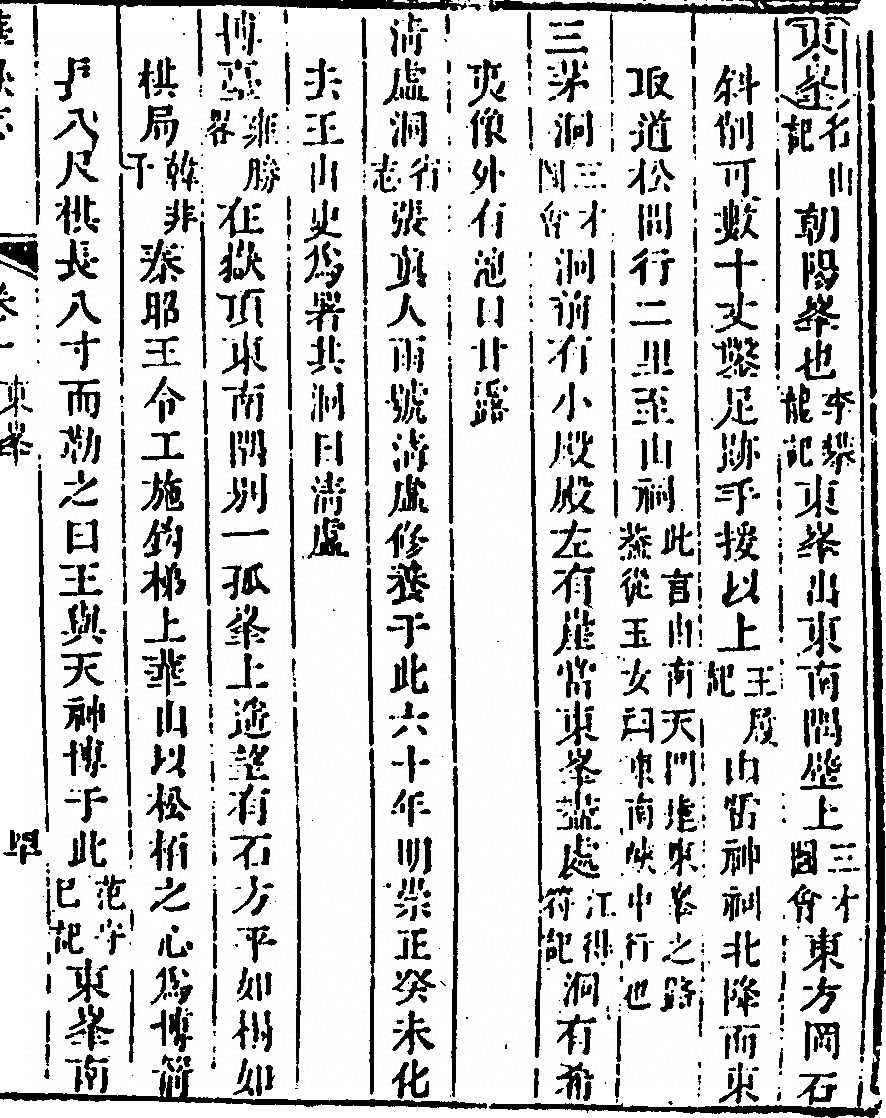 東峯名山記朝陽峯也李攀龍記東峯出東南閣壁上三才圖會東方岡石
斜削可數十丈鑿足跡手援以上王履記由雷神祠北降而東
取道松間行二里至山祠此言由南天門達東峯之路蓋從玉女曰東南峽中行也
三茅洞三才圖會洞前有小殿殿左有崖當東峯盡處江得符記洞有希
夷像外有池曰甘露
清虛洞省志張真人雨號清虛修養于此六十年明崇正癸未化
去王山史爲署其洞曰清虛
博臺雍勝畧在嶽頂東南隅別一孤峯上遙望有石方平如榻如
棋局韓非子秦昭王令工施鉤梯上華山以松栢之心爲博箭
長八尺棋長八寸而勒之曰王與天神博于此范守己記東峯南
卷一 東峯